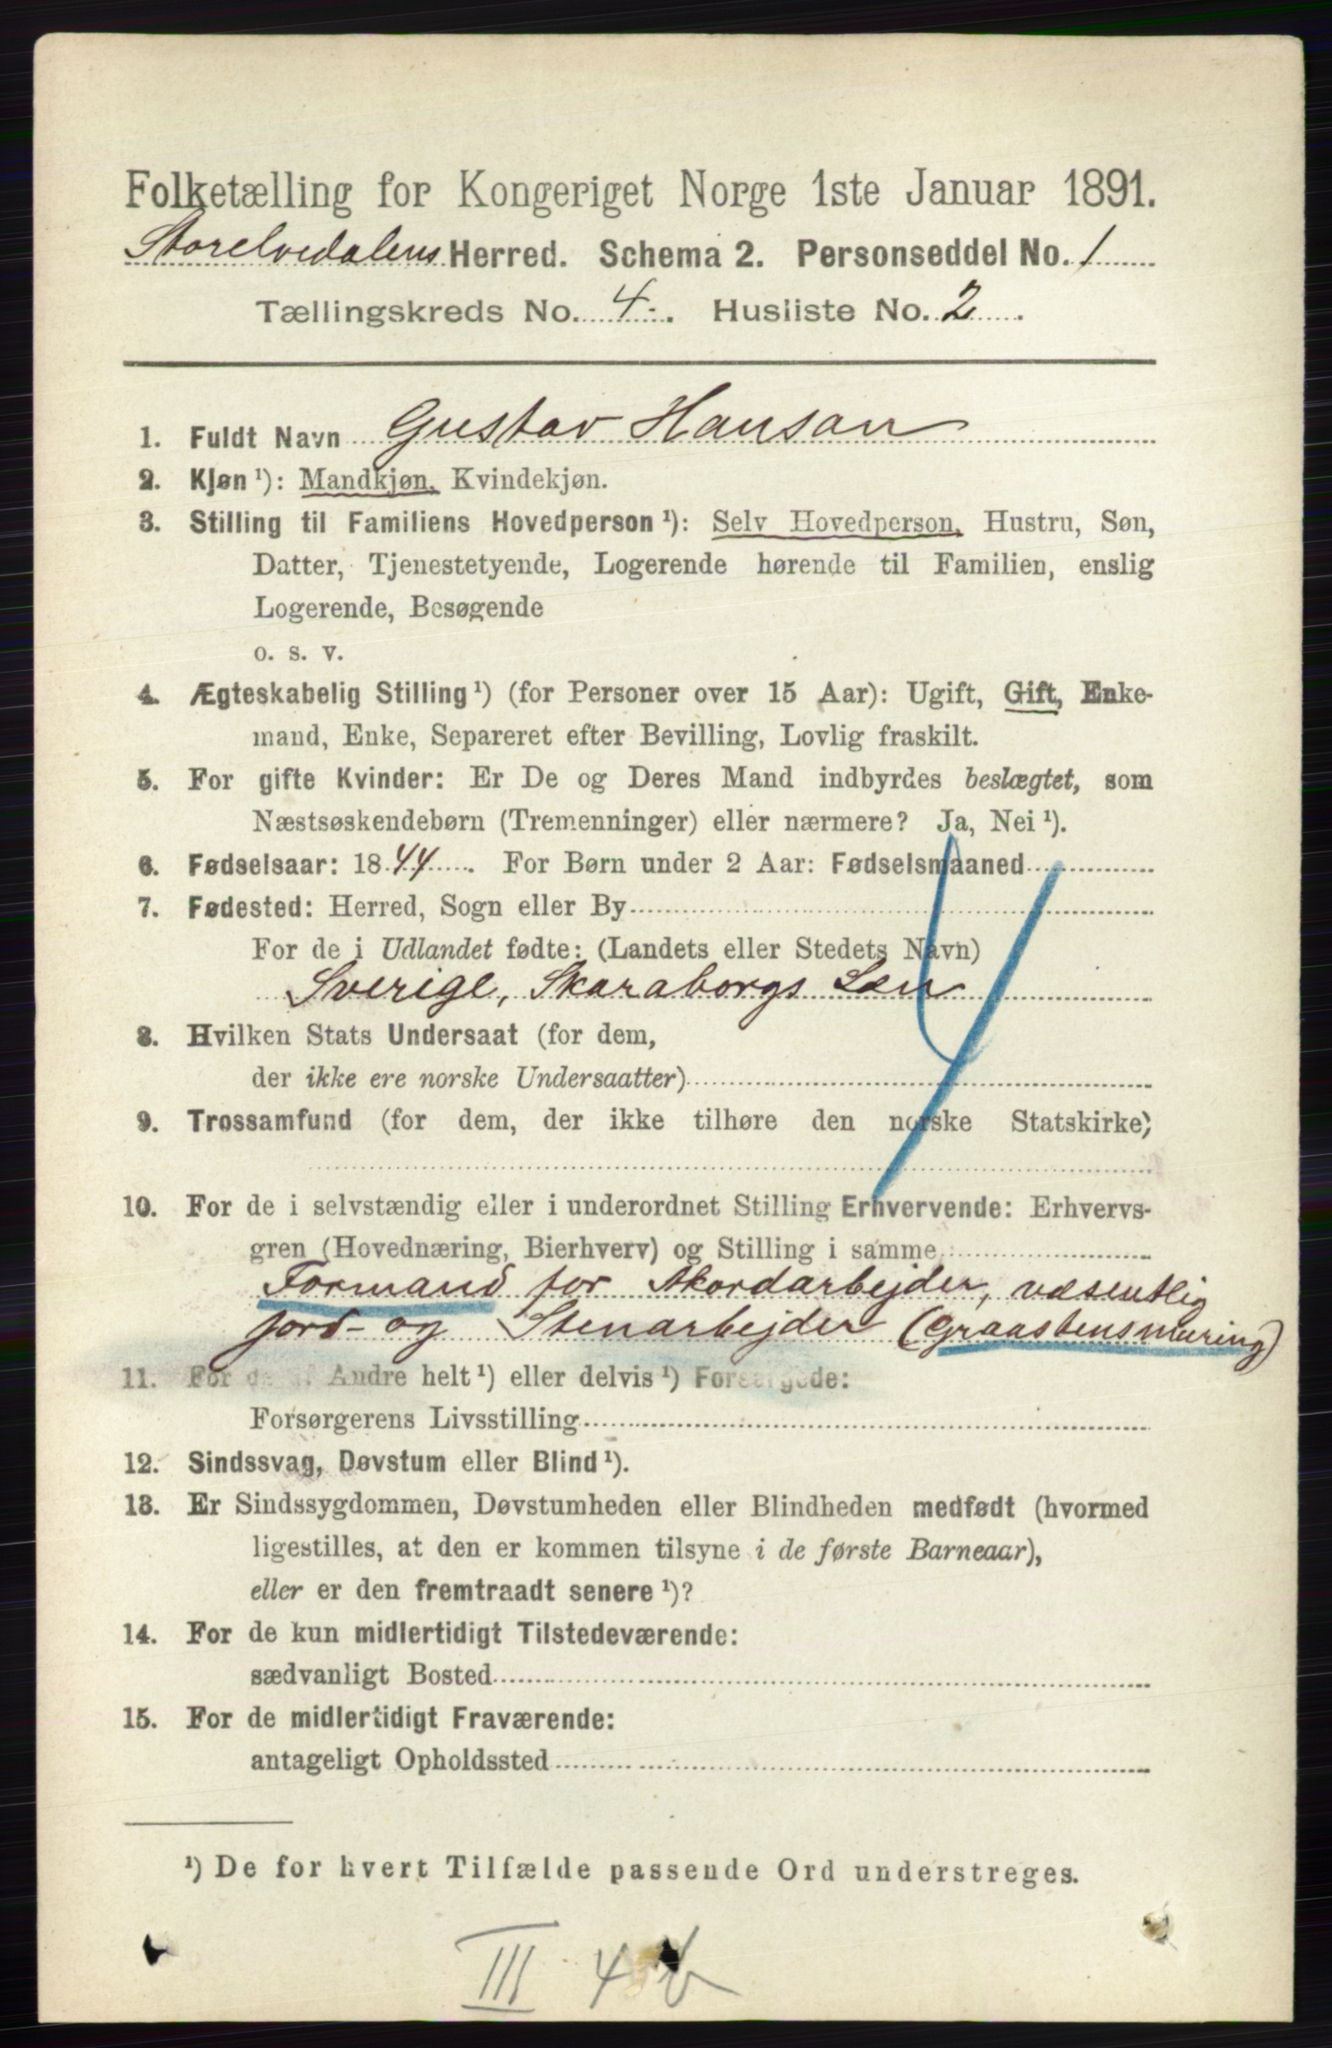 Folketælling for Kongeriget Norge 1ste Januar 1891.
Storelvedalens Herred. Schema 2. Personseddel No. 1
Tællingskreds No. 4. Husliste No. 2.
1. Fuldt Navn Gustav Hanson
2. Kjøn ¹): Mandkjøn, Kvindekjøn.
3. Stilling til Familiens Hovedperson ¹): Selv Hovedperson, Hustru, Søn,
Datter, Tjenestetyende, Logerende hørende til Familien, enslig
Logerende, Besøgende
o. s. v.
4. Ægteskabelig Stilling ¹) (for Personer over 15 Aar): Ugift, Gift, Enke-
mand, Enke, Separeret efter Bevilling, Lovlig fraskilt.
5. For gifte Kvinder: Er De og Deres Mand indbyrdes beslægtet, som
Næstsøskendebørn (Tremenninger) eller nærmere? Ja, Nei ¹).
6. Fødselsaar: 1844. For Børn under 2 Aar: Fødselsmaaned
7. Fødested: Herred, Sogn eller By
For de i Udlandet fødte: (Landets eller Stedets Navn)
Sverige, Skaraborgs Len
8. Hvilken Stats Undersaat (for dem,
der ikke ere norske Undersaatter)
9. Trossamfund (for dem, der ikke tilhøre den norske Statskirke)
4
10. For de i selvstændig eller i underordnet Stilling Erhvervende: Erhvervs-
gren (Hovednæring, Bierhverv) og Stilling i samme
Formand for Akordarbejder, væsentlig
jord- og Stenarbejder (Graastensmuring)
11. For de af Andre helt ¹) eller delvis ¹) Forsørgede:
Forsørgerens Livsstilling
12. Sindssvag, Døvstum eller Blind ¹).
13. Er Sindssygdommen, Døvstumheden eller Blindheden medfødt (hvormed
ligestilles, at den er kommen tilsyne i de første Barneaar),
eller er den fremtraadt senere ¹)?
14. For de kun midlertidigt Tilstedeværende:
sædvanligt Bosted
15. For de midlertidigt Fraværende:
antageligt Opholdssted
¹) De for hvert Tilfælde passende Ord understreges.
III 4